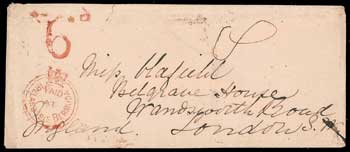 6
Miss Hatfield
Belgrave House
Wandsworth Road
England. London S.W.
PAID